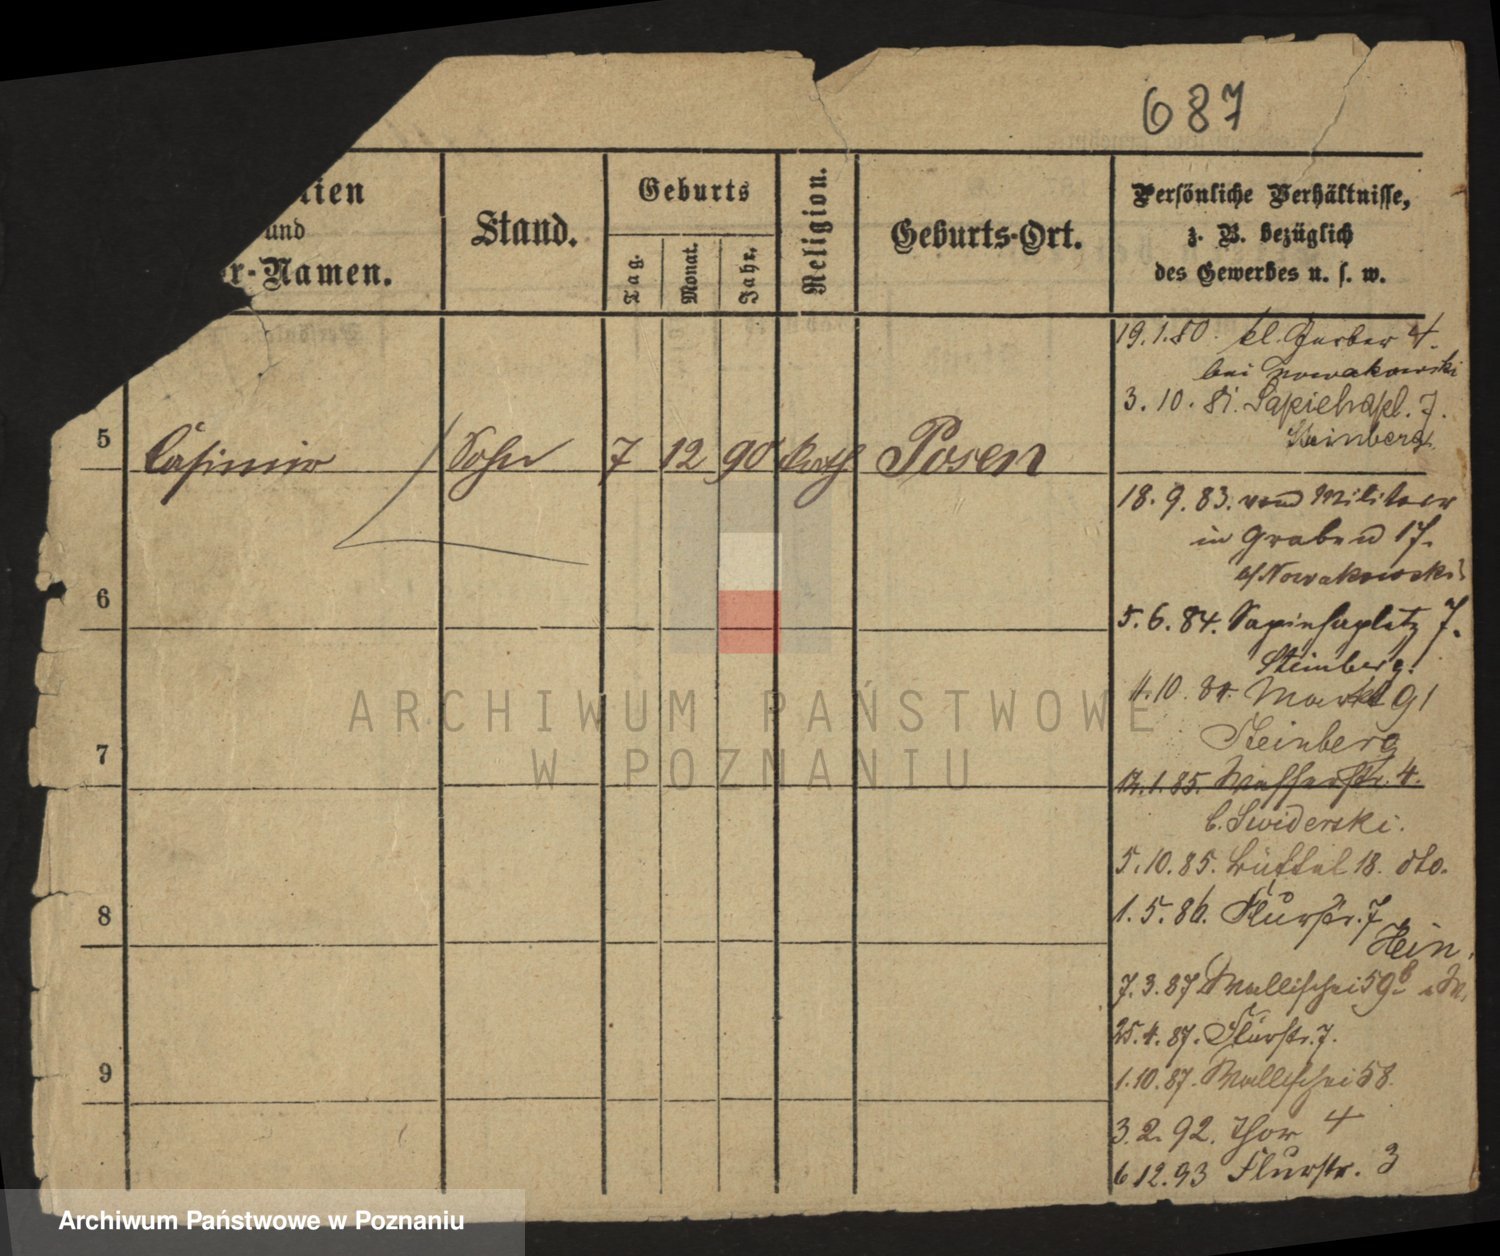 687
und
r-Namen.
Stand.
Geburts
Tag.
Monat.
Jahr.
Religion.
Geburts-Ort.
Persönliche Verhältnisse,
z. B. bezüglich
des Gewerbes u. s. w.
19.1.80. kl. Gerber 4.
bei Nowakowski
3.10.81. Sapiehapl. 7.
Steinberg.
5 Casimir Sohn 7 12 90 kath Posen
18.9.83. vom Militaer
in Graben 17.
b/Nowakowski
6
5.6.84. Sapiehaplatz 7.
Steinberg.
4.10.84. Markt 91
Steinberg
7
1.85. Wasserstr. 4.
b. Swiderski.
5.10.85. Büttel 18. dto.
8
1.5.86. Flurstr. 7
Hein.
7.3.87. Wallischei 59b
25.4.87. Flurstr. 7.
9
1.10.87. Wallischei 58.
3.2.92. Thor 4
6 12.93 Flurstr. 3
ARCHIWUM PAŃSTWOWE
W POZNANIU
Archiwum Państwowe w Poznaniu